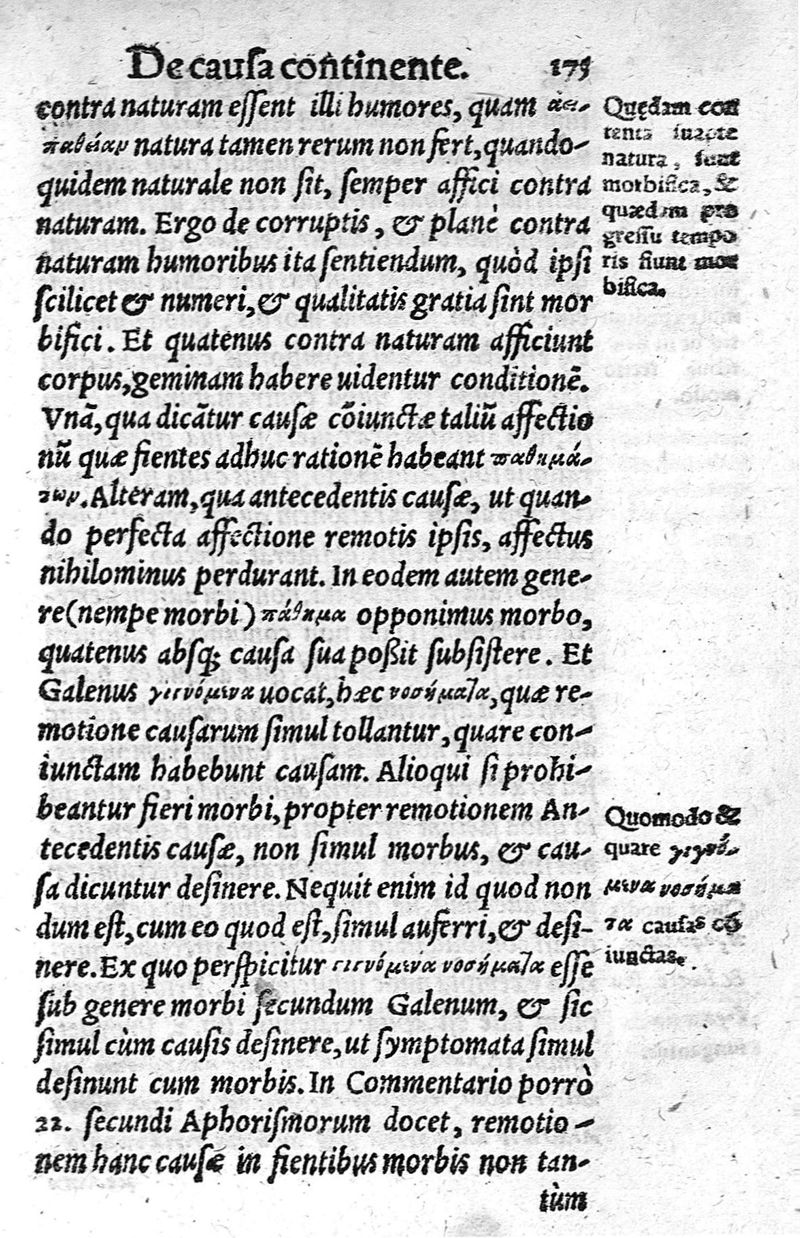 De causa continente. 175
contra naturam essent illi humores, quam ἀει-
παθείαν natura tamen rerum non fert, quando-
quidem naturale non sit, semper affici contra
naturam. Ergo de corruptis, & planè contra
naturam humoribus ita sentiendum, quòd ipsi
scilicet & numeri, & qualitatis gratia sint mor
bifici. Et quatenus contra naturam afficiunt
corpus, geminam habere uidentur conditionē.
Vnā, qua dicātur causæ cōiunctæ taliū affectio
nū quæ fientes adhuc rationē habeant παθημά-
των. Alteram, qua antecedentis causæ, ut quan-
do perfecta affectione remotis ipsis, affectus
nihilominus perdurant. In eodem autem gene-
re (nempe morbi) πάθημα opponimus morbo,
quatenus absq; causa sua poßit subsistere. Et
Galenus γινόμενα uocat, hæc νοσήματα, quæ re-
motione causarum simul tollantur, quare con-
iunctam habebunt causam. Alioqui si prohi-
beantur fieri morbi, propter remotionem An-
tecedentis causæ, non simul morbus, & cau-
sa dicuntur desinere. Nequit enim id quod non
dum est, cum eo quod est, simul auferri, & desi-
nere. Ex quo perspicitur γινόμενα νοσήματα esse
sub genere morbi secundum Galenum, & sic
simul cùm causis desinere, ut symptomata simul
desinunt cum morbis. In Commentario porrò
22. secundi Aphorismorum docet, remotio-
nem hanc causæ in fientibus morbis non tan-
tùm
Quędam con
tenta suapte
natura, sunt
morbifica, &
quædam pro
gressu tempo
ris fiunt mor
bifica.
Quomodo &
quare γιγνό-
μενα νοσήμα
τα causas cō
iunctas.